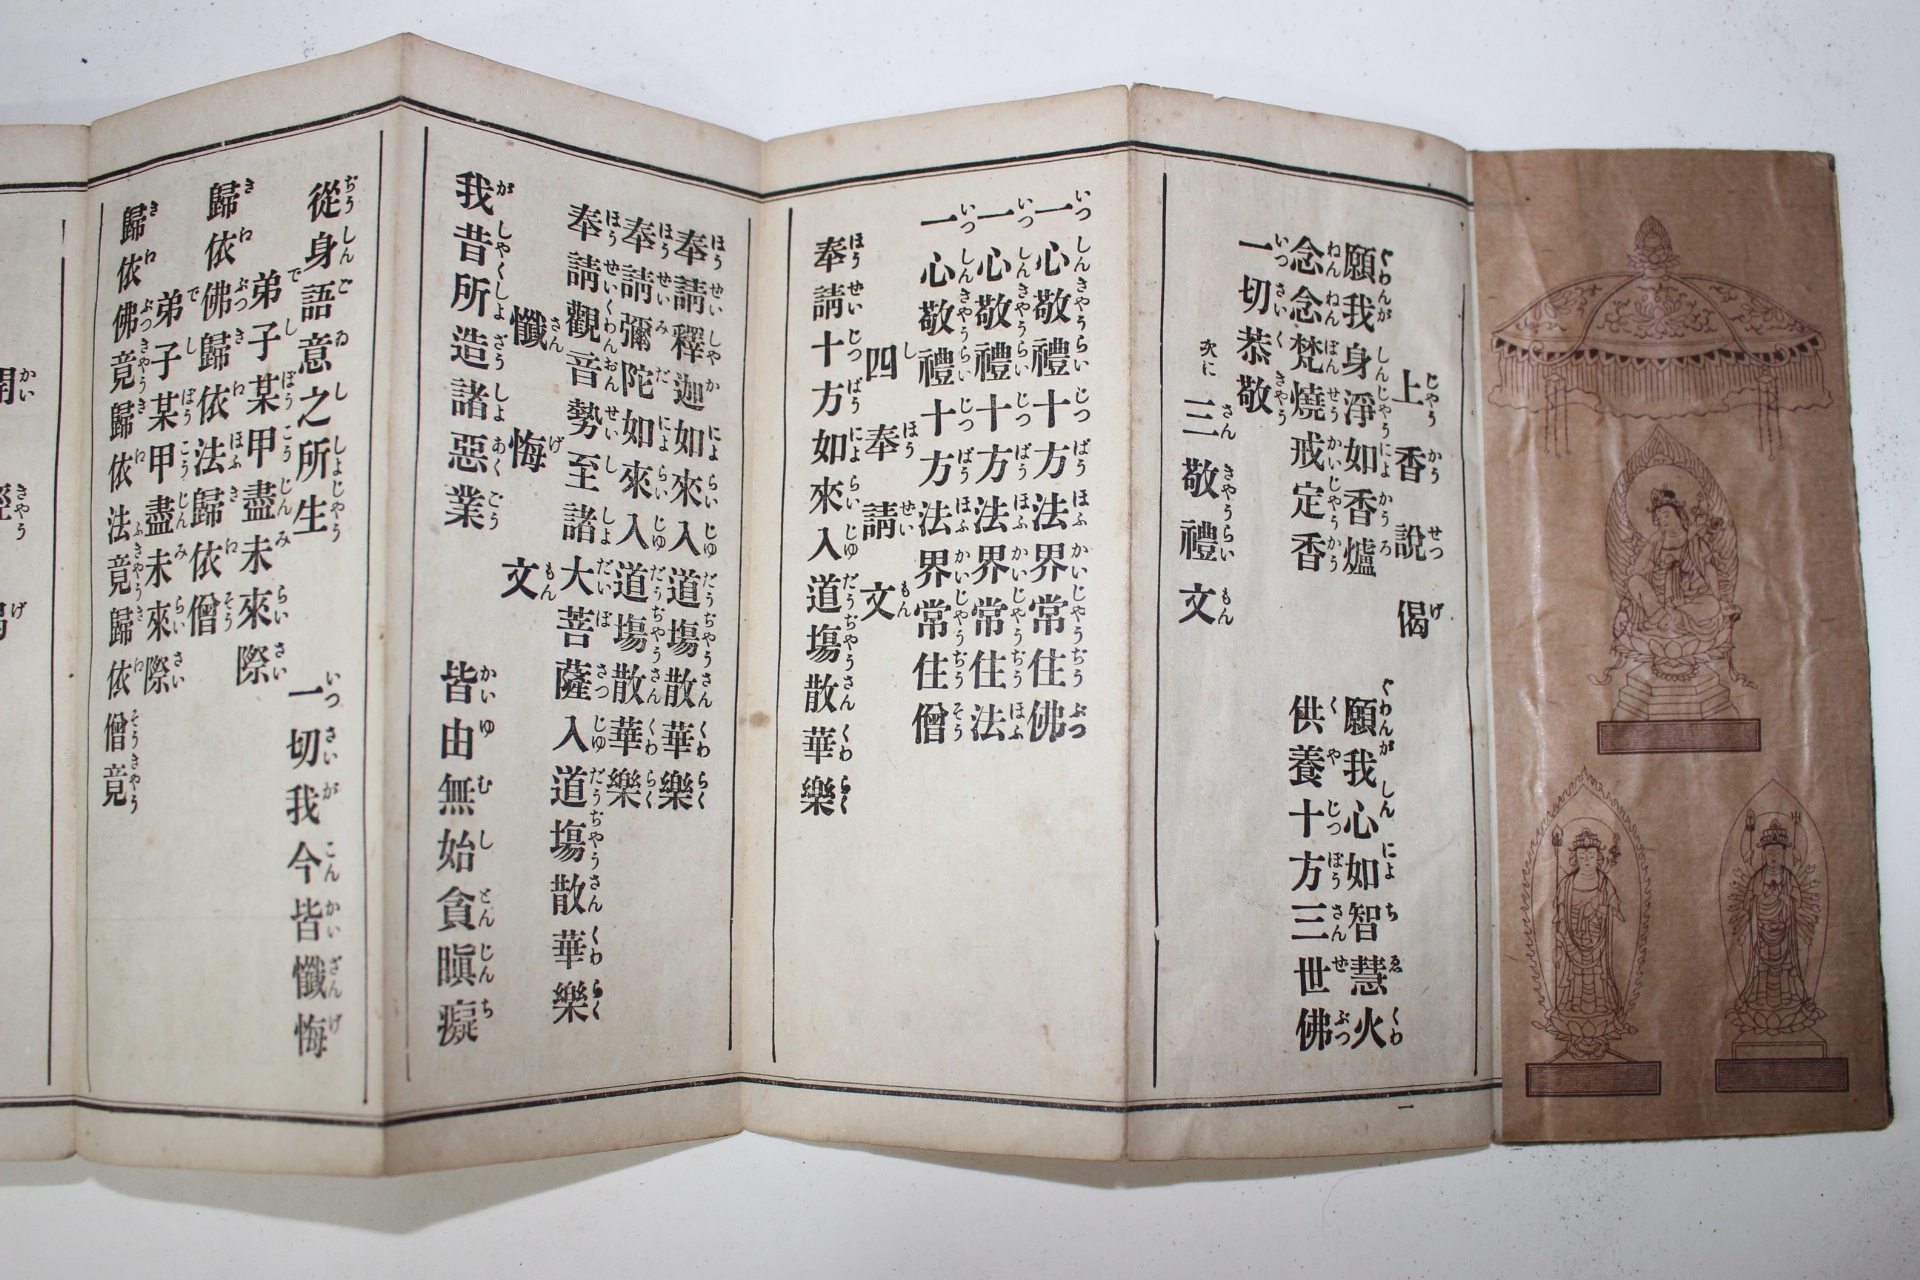 上香說偈
願我身淨如香爐　願我心如智慧火
念念梵燒戒定香　供養十方三世佛
一切恭敬
次に三敬禮文
一心敬禮十方法界常住佛
一心敬禮十方法界常住法
一心敬禮十方法界常住僧
四奉請文
奉請十方如來入道場散華樂
奉請釋迦如來入道場散華樂
奉請彌陀如來入道場散華樂
奉請觀音勢至諸大菩薩入道場散華樂
懺悔文
我昔所造諸惡業　皆由無始貪瞋癡
從身語意之所生　一切我今皆懺悔
弟子某甲盡未來際
歸依佛歸依法歸依僧
弟子某甲盡未來際
歸依佛竟歸依法竟歸依僧竟